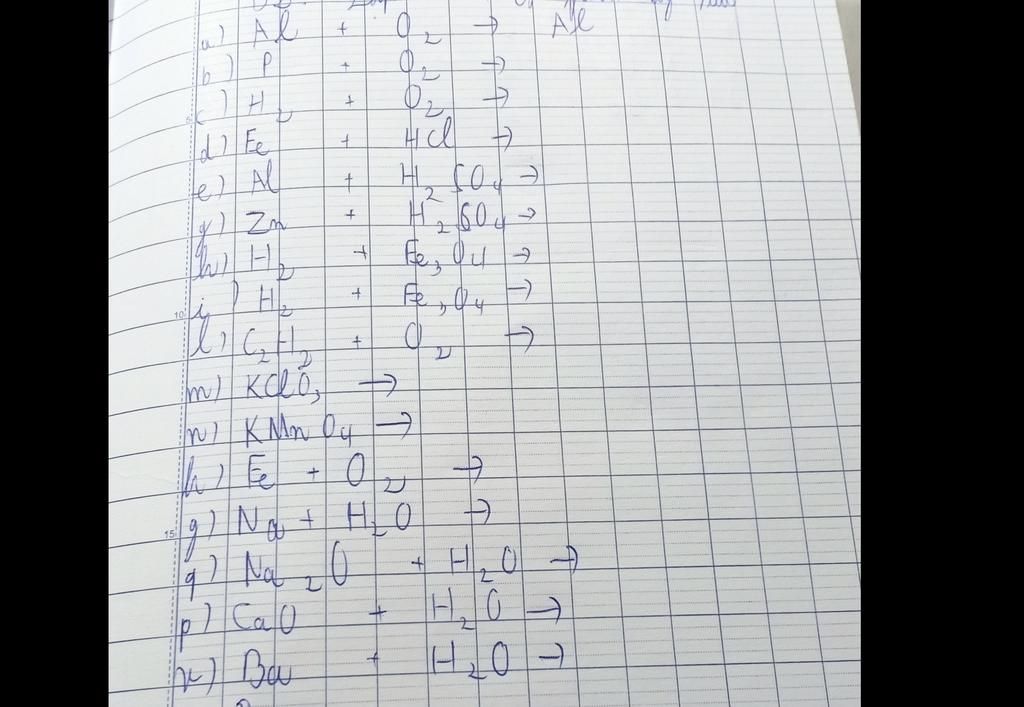 a) Al + O2 → Al
b) P + O2 →
c) H2 + O2 →
d) Fe + HCl →
e) Al + H2SO4 →
y) Zn + H2SO4 →
h) H2 + Fe3O4 →
i) H2 + Fe3O4 →
l) C2H2 + O2 →
m) KClO3 →
n) KMnO4 →
h) Fe + O2 →
g) Na + H2O →
q) Na2O + H2O →
p) CaO + H2O →
r) Ba + H2O →